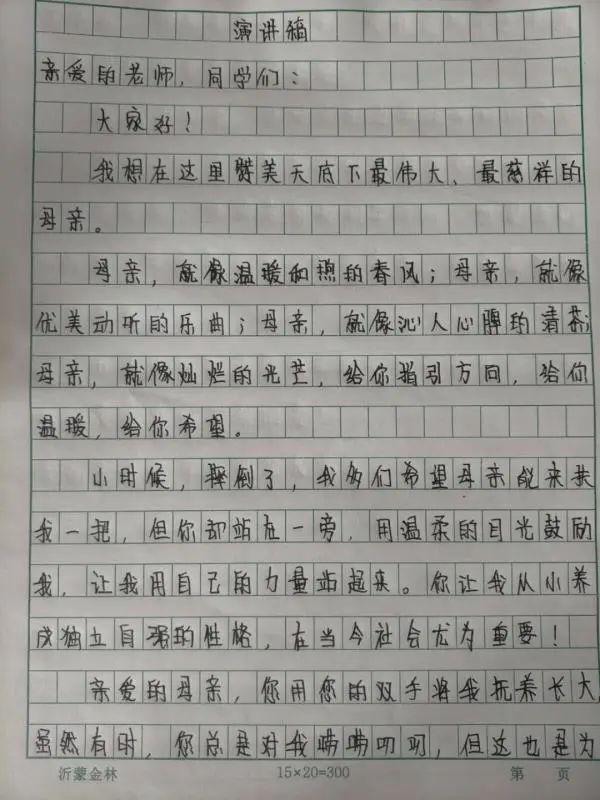 演讲稿
亲爱的老师，同学们：
大家好！
我想在这里赞美天底下最伟大、最慈祥的
母亲。
母亲，就像温暖和煦的春风；母亲，就像
优美动听的乐曲；母亲，就像沁人心脾的清茶；
母亲，就像灿烂的光芒，给你指引方向，给你
温暖，给你希望。
小时候，摔倒了，我多们希望母亲能来扶
我一把，但你却站在一旁，用温柔的目光鼓励
我，让我用自己的力量站起来。你让我从小养
成独立自强的性格，在当今社会尤为重要！
亲爱的母亲，您用您的双手将我抚养长大，
虽然有时，您总是对我唠唠叨叨，但这也是为
沂蒙金林 15×20=300 第 页